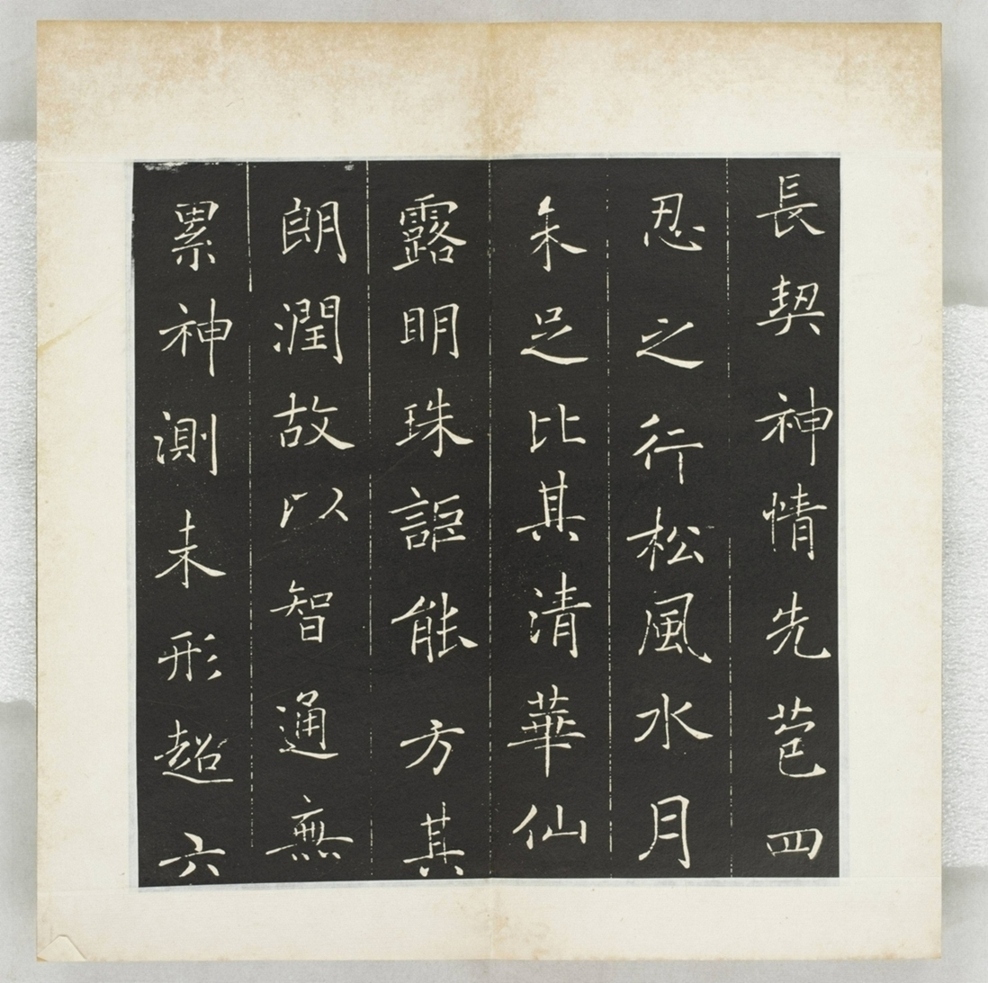 長契神情先苞四
忍之行松風水月
未足比其清華仙
露明珠詎能方其
朗潤故以智通無
累神測未形超六